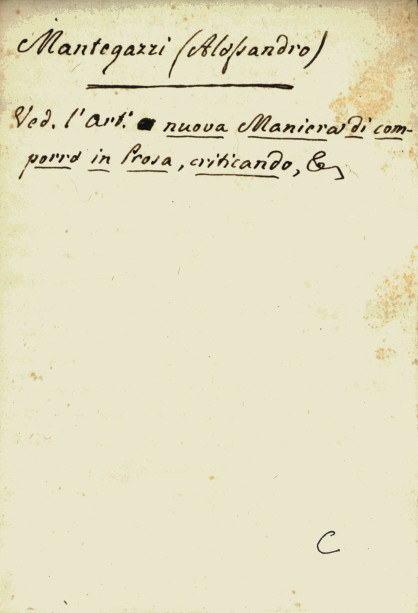 Mantegazzi (Alessandro)
Ved. l'Art.º nuova Maniera di com-
porre in Prosa, criticando, &c
C